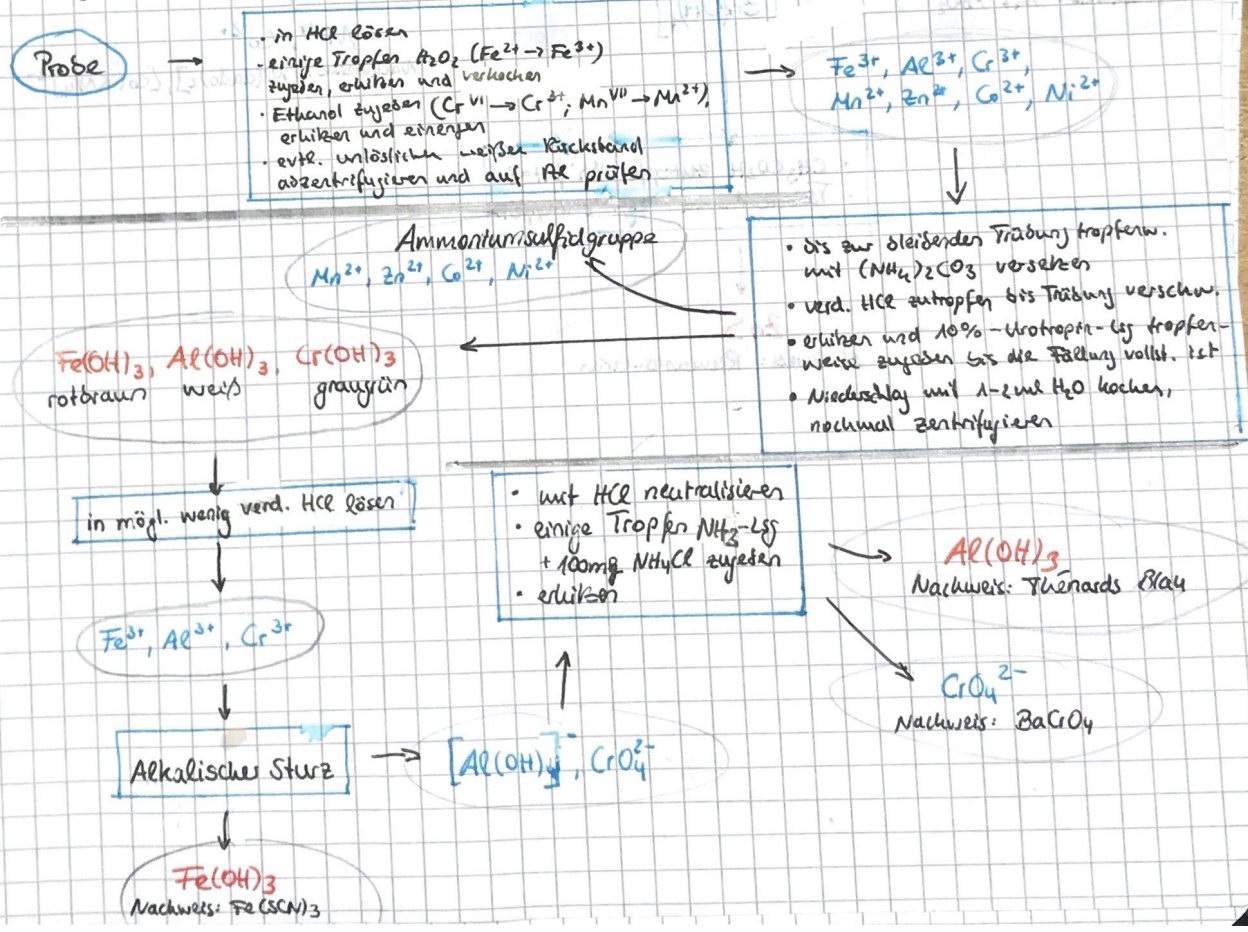 Probe
· in HCl lösen
· einige Tropfen H₂O₂ (Fe²⁺ → Fe³⁺)
zugeben, erhitzen und verkochen
· Ethanol zugeben (Cr^VI → Cr³⁺; Mn^VII → Mn²⁺),
erhitzen und einengen
· evtl. unlöslichen weißen Rückstand
abzentrifugieren und auf Al prüfen
Fe³⁺, Al³⁺, Cr³⁺,
Mn²⁺, Zn²⁺, Co²⁺, Ni²⁺
· bis zur bleibenden Trübung tropfenw.
mit (NH₄)₂CO₃ versetzen
· verd. HCl zutropfen bis Trübung verschw.
· erhitzen und 10%-Urotropin-Lsg tropfen-
weise zugeben bis die Fällung vollst. ist
· Niederschlag mit 1-2 ml H₂O kochen,
nochmal zentrifugieren
Ammoniumsulfidgruppe
Mn²⁺, Zn²⁺, Co²⁺, Ni²⁺
Fe(OH)₃, Al(OH)₃, Cr(OH)₃
rotbraun weiß graugrün
in mögl. wenig verd. HCl lösen
Fe³⁺, Al³⁺, Cr³⁺
Alkalischer Sturz
Fe(OH)₃
Nachweis: Fe(SCN)₃
[Al(OH)₄]⁻, CrO₄²⁻
· mit HCl neutralisieren
· einige Tropfen NH₃-Lsg
+ 100mg NH₄Cl zugeben
· erhitzen
Al(OH)₃
Nachweis: Thénards Blau
CrO₄²⁻
Nachweis: BaCrO₄